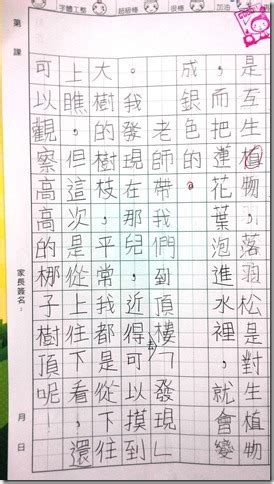 字體工整 超級棒 很棒 加油
是互生植物，落羽松是對生植物
，而把蓮花葉泡進水裡，就會變
成銀色的。
老師帶我們到頂樓去「發現」
。我發現在那兒，近得可以摸到
大樹的樹枝，平常我都是從下往
上瞧，但這次是從上往下看，還
可以觀察高高的梆子樹頂呢！
第 課
家長簽名：
月 日